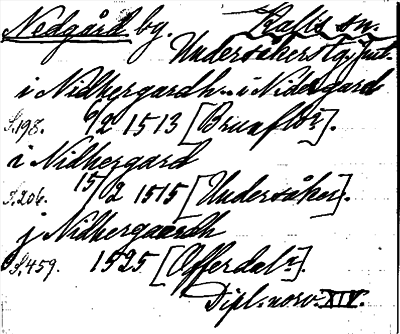 Nedgård by. Kalls sn.
Undersåkers tg, Jmtl.
i Nidhergardh - i Nidergard
S.198. 6/2 1513 [Brunflo].
i Nidhergard
S.206. 15/2 1515 [Undersåker].
j Nidhergaardh
S.459. 1525 [Offerdal].
Dipl. norv. XIV.